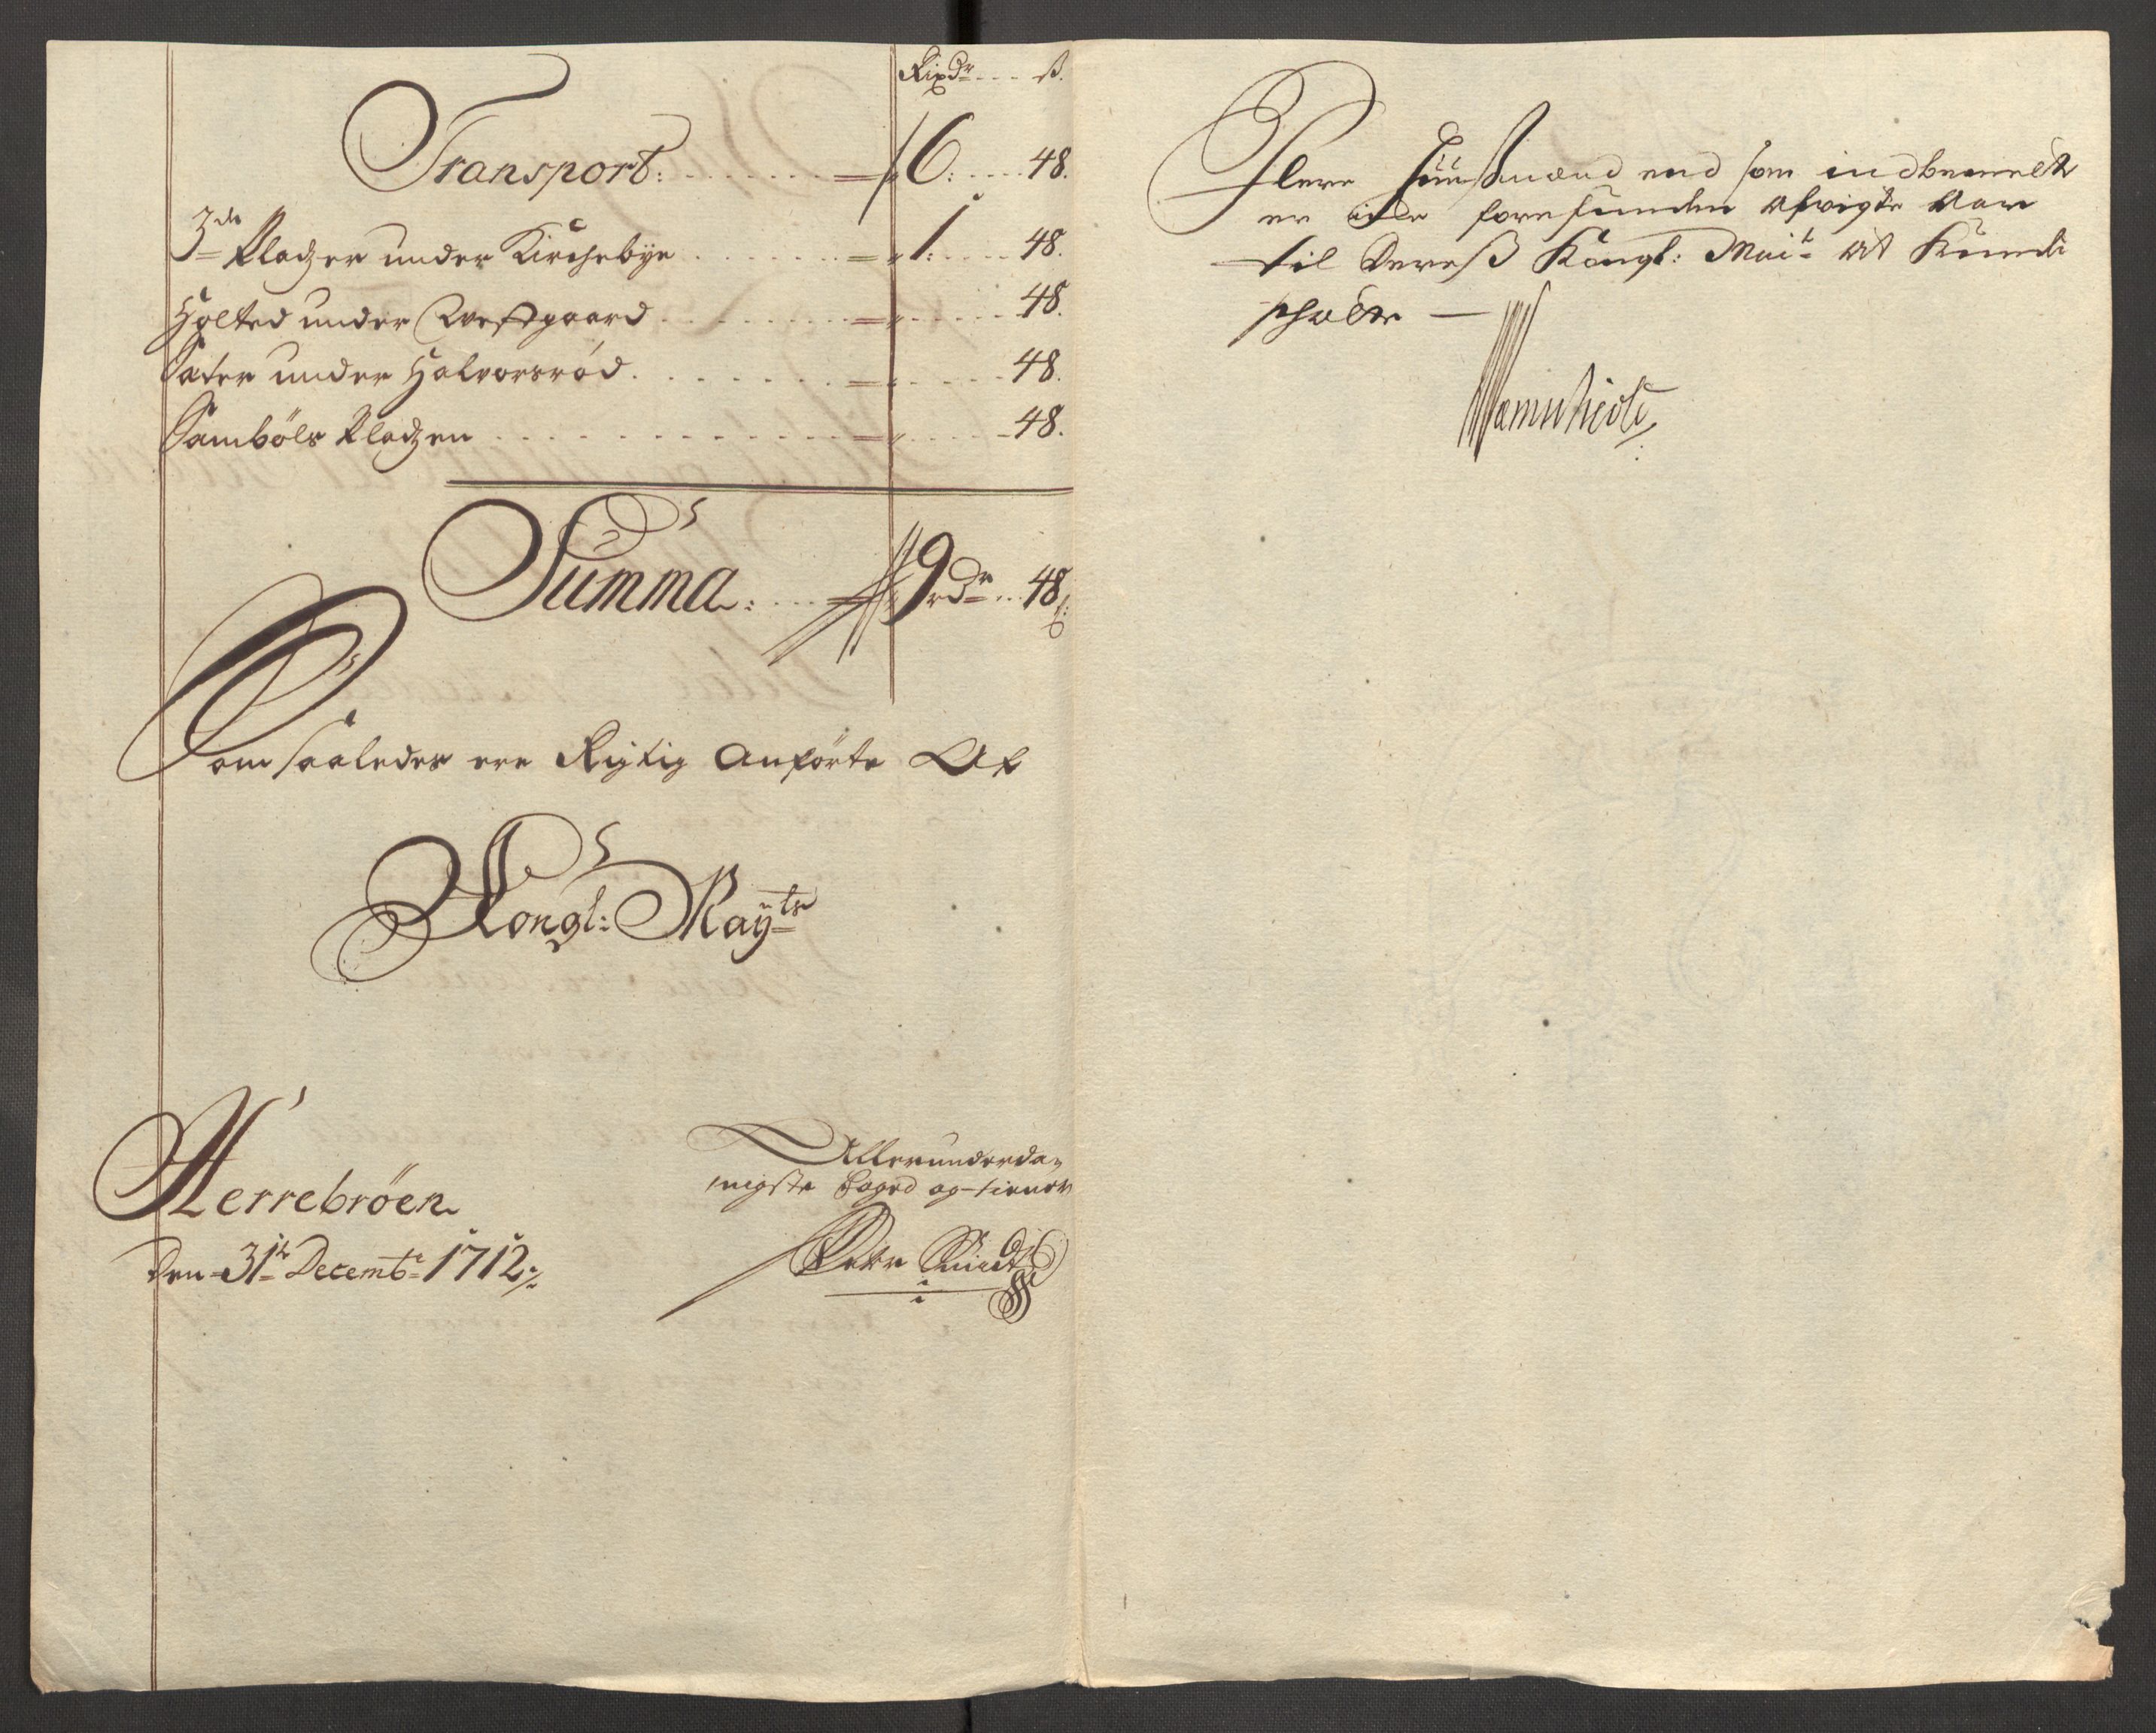 Rixdr - - - ß.
Transport: = 6: 48.
3de Pladzer under Kirchebÿe = 1: 48.
Holted under Westgaard = 48.
Sater under Halvorsrød = 48.
Sambøls Pladzen = 48.
Summa: 9 rdr 48 ß:
Som saaledes ere Rigtig Anførte Af
Kongl: Maÿts
Herrebröen
Den 31te Decembr 1712
Allerunderda-
nigste Foged og tiener
Peter
Flere Huusmænd end som indbemelte
er icke forefunden afvigte Aar
til Deres Kongl: Mait at kunde
schatte —